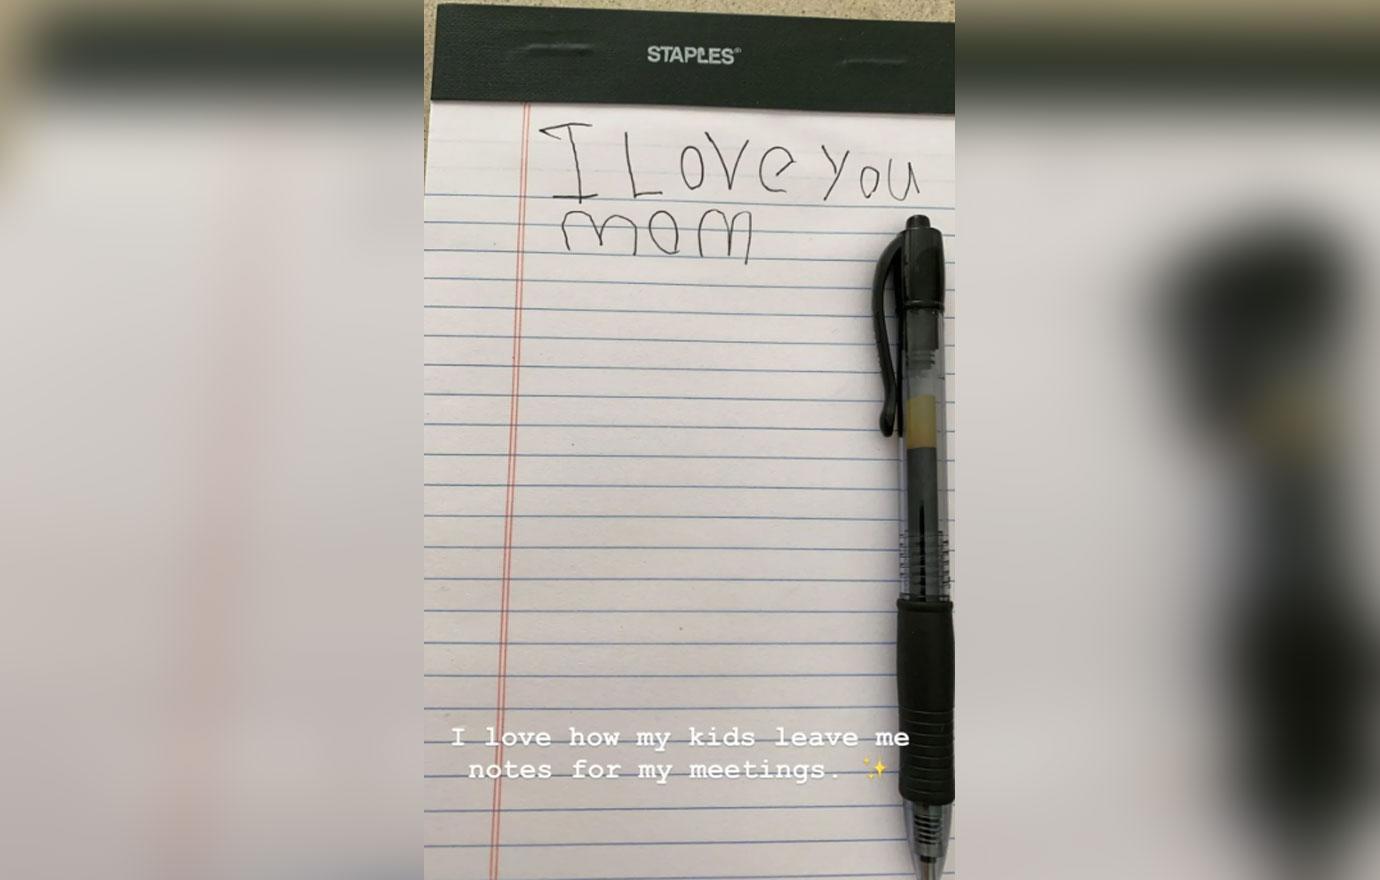 STAPLES®
I Love you
mom
I love how my kids leave me
notes for my meetings. ✨